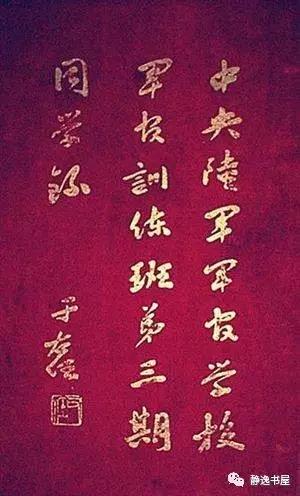 中央陸軍軍官学校
軍官訓練班第三期
同学錄
于右任
静逸书屋